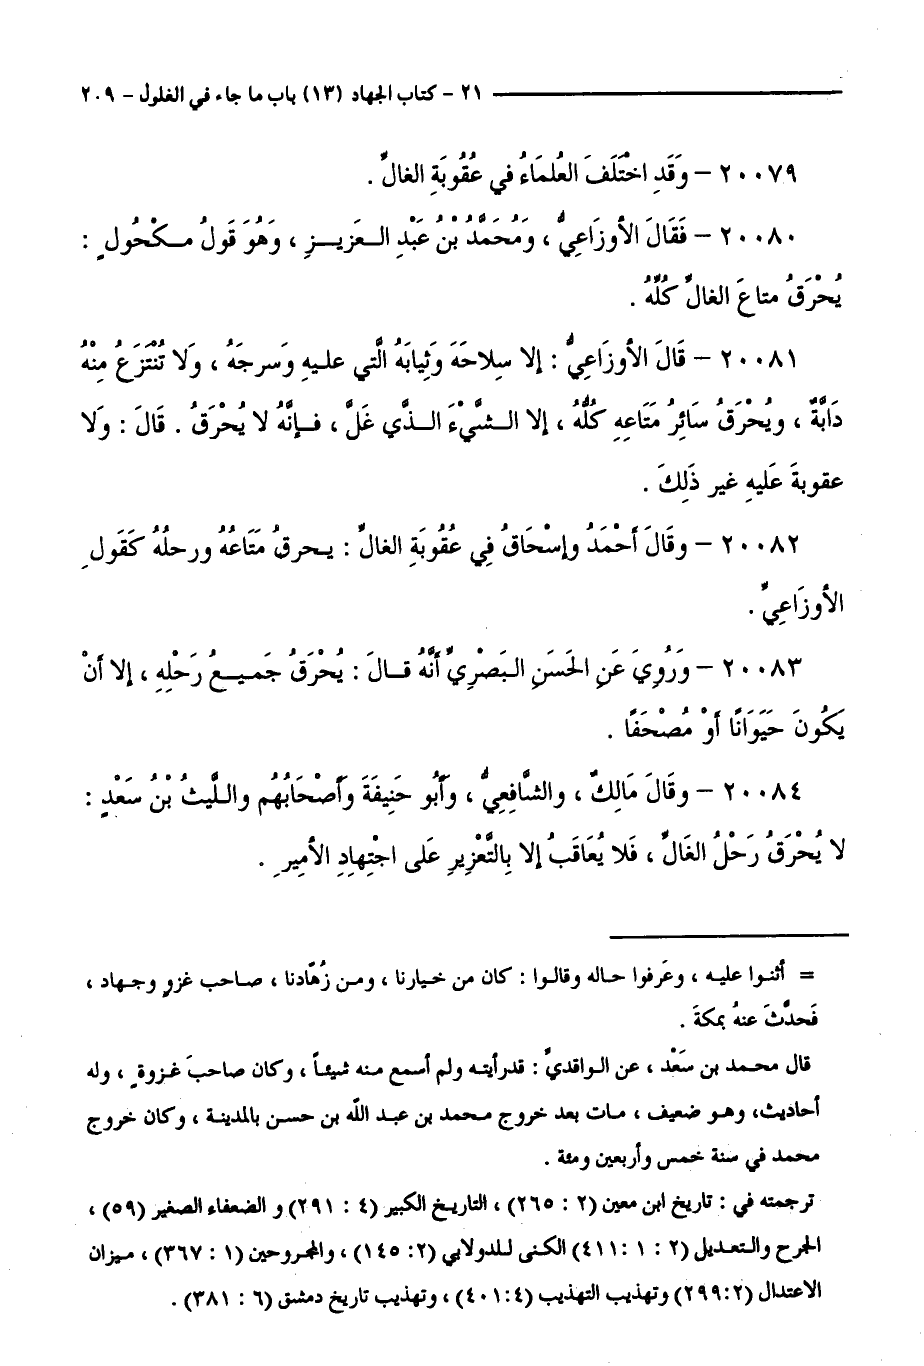 ٢١ - كتاب الجهاد (١٣) باب ما جاء في الغلول - ٢٠٩
٢٠٠٧٩ - وَقَدِ اخْتَلَفَ العُلَمَاءُ في عُقُوبَةِ الغالِّ .
٢٠٠٨٠ - فَقَالَ الأوزَاعِيُّ ، وَمُحَمَّدُ بْنُ عَبْدِ العَزِيزِ ، وَهُوَ قَولُ مكْحُولٍ :
يُحْرَقُ متاعَ الغالِّ كُلَّهُ .
٢٠٠٨١ - قَالَ الأوزَاعِيُّ : إلا سِلاحَهَ وَثِيابَهُ الَّتي عليهِ وَسرجَهُ ، وَلا تُنْتَزَعُ مِنْهُ
دَابَّةٌ ، ويُحْرَقُ سَائِرُ مَتَاعِهِ كُلُّهُ ، إلا الشَّيْءَ الذَّي غَلَّ ، فإنَّهُ لا يُحْرَقُ . قَالَ : وَلا
عقوبةَ عَليهِ غير ذَلِكَ .
٢٠٠٨٢ - وقَالَ أَحْمَدُ وإسْحَاقُ فِي عُقُوبَةِ الغالِّ : يحرقُ مَتَاعُهُ ورحلُهُ كَقَولِ
الأوزَاعِيِّ .
٢٠٠٨٣ - وَرُوِيَ عَنِ الحَسَنِ البَصْرِيِّ أَنَّهُ قالَ : يُحْرَقُ جَميعُ رَحْلِهِ ، إلا أنْ
يَكُونَ حَيَوَانًا أوْ مُصْحَفًا .
٢٠٠٨٤ - وقَالَ مَالِكٌ ، والشَّافِعِيُّ ، وَأَبُو حَنِيفَةَ وَأَصْحَابُهُم واللَّيثُ بْنُ سَعْدٍ :
لا يُحْرَقُ رَحْلُ الغَالِّ ، فَلا يُعَاقَبُ إلا بِالتَّعْزِيرِ عَلى اجْتِهادِ الأمِيرِ .
= أثنوا عليه ، وعَرفوا حاله وقالوا : كان من خيارنا ، ومن زُهّادنا ، صاحب غزوٍ وجهاد ،
فَحدَّثَ عنهُ بمكةَ .
قال محمد بن سَعْد ، عن الواقديِّ : قدرأيته ولم أسمع منه شيئاً ، وكان صاحبَ غزوةٍ ، وله
أحاديث، وهو ضعيف ، مات بعد خروج محمد بن عبد الله بن حسن بالمدينة ، وكان خروج
محمد في سنة خمس وأربعين ومئة .
ترجمته في : تاريخ ابن معين (٢ : ٢٦٥) ، التاريخ الكبير (٤ : ٢٩١) و الضعفاء الصغير (٥٩) ،
الجرح والتعديل (٢ : ١ :٤١١) الكنى للدولابي (٢: ١٤٥) ، والمجروحين (١ : ٣٦٧) ، ميزان
الاعتدال (٢٩٩:٢) وتهذيب التهذيب (٤٠١:٤) ، وتهذيب تاريخ دمشق (٦ : ٣٨١) .